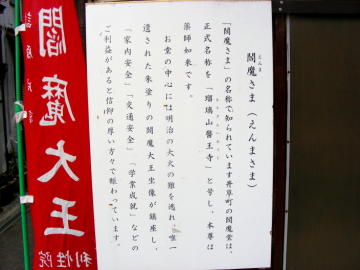 閻魔さま（えんまさま）
えんま
「閻魔さま」の名称で知られています井草町の閻魔堂は、
正式名称を「瑠璃山醫王寺」と号し、本尊は
薬師如来です。
お堂の中心には明治の大火の難を逃れ、唯一
遺された朱塗りの閻魔大王坐像が鎮座し、
「家内安全」「交通安全」「学業成就」などの
ご利益があると信仰の厚い方々で賑わっています。
閻魔大王
利性院